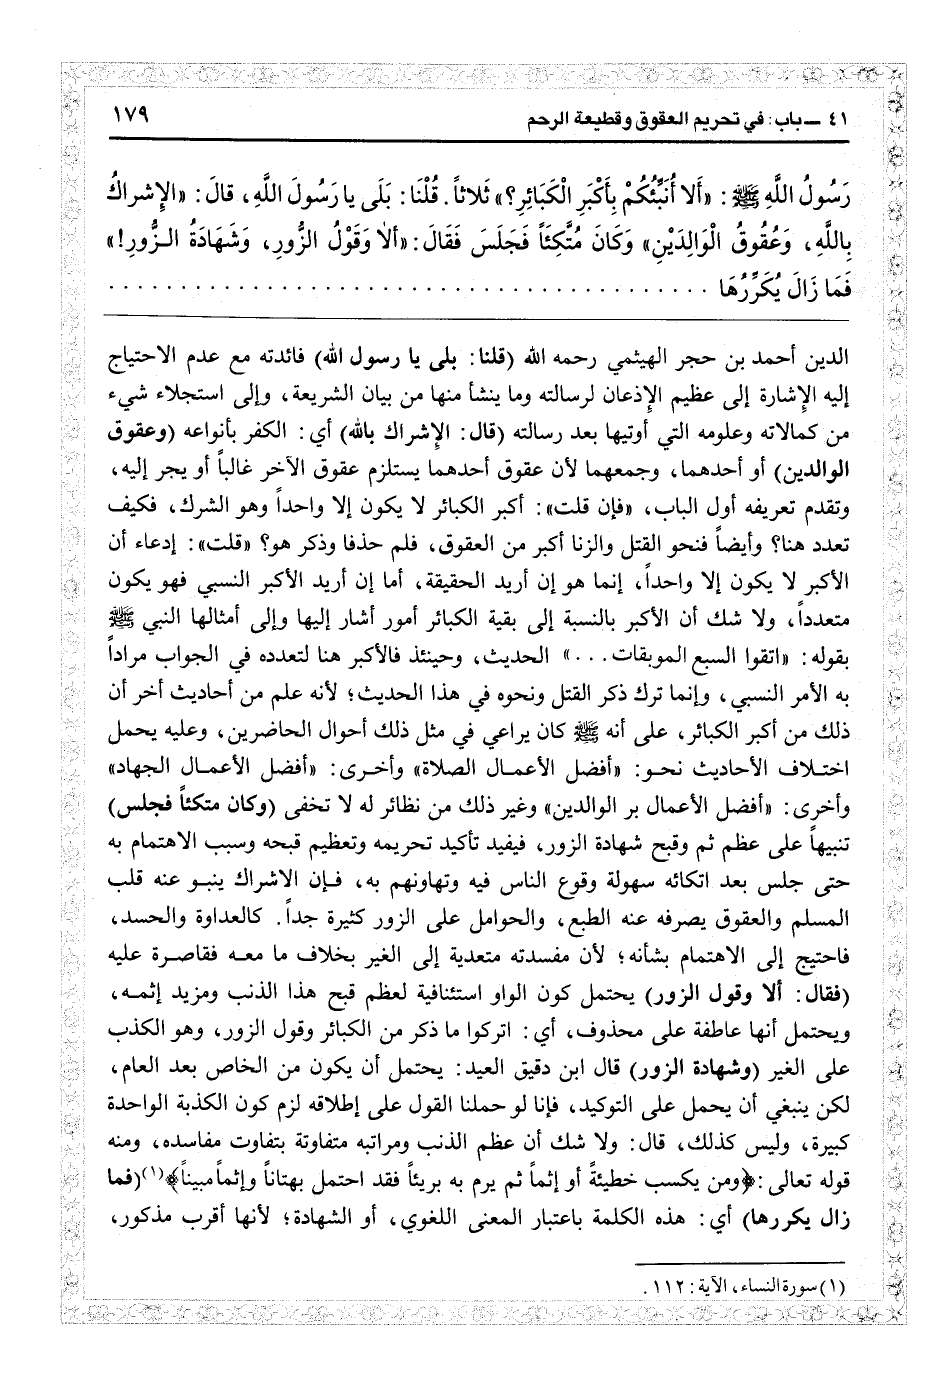 ٤١ ـ باب: في تحريم العقوق وقطيعة الرحم ١٧٩
رَسُولُ اللَّهِ ﷺ: «أَلا أُنَبِّئُكُمْ بِأَكْبَرِ الْكَبَائِرِ؟» ثَلاثاً. قُلْنَا: بَلَى يا رَسُولَ اللَّهِ، قالَ: «الإِشراكُ
بِاللَّهِ، وَعُقُوقُ الْوَالِدَيْنِ» وَكَانَ مُتَّكِئاً فَجَلَسَ فَقَالَ: «ألا وَقَوْلُ الزُّورِ، وَشَهَادَةُ الـزُّورِ!»
فَمَا زَالَ يُكَرِّرُهَا . . . . . . . . . . . . . . . . . . . . . . . . . . . . . . . . . . . . . . . . . .
الدين أحمد بن حجر الهيثمي رحمه الله (قلنا: بلى يا رسول الله) فائدته مع عدم الاحتياج
إليه الإشارة إلى عظيم الإذعان لرسالته وما ينشأ منها من بيان الشريعة، وإلى استجلاء شيء
من كمالاته وعلومه التي أوتيها بعد رسالته (قال: الإشراك بالله) أي: الكفر بأنواعه (وعقوق
الوالدين) أو أحدهما، وجمعهما لأن عقوق أحدهما يستلزم عقوق الآخر غالباً أو يجر إليه،
وتقدم تعريفه أول الباب، «فإن قلت»: أكبر الكبائر لا يكون إلا واحداً وهو الشرك، فكيف
تعدد هنا؟ وأيضاً فنحو القتل والزنا أكبر من العقوق، فلم حذفا وذكر هو؟ «قلت»: إدعاء أن
الأكبر لا يكون إلا واحداً، إنما هو إن أريد الحقيقة، أما إن أريد الأكبر النسبي فهو يكون
متعدداً، ولا شك أن الأكبر بالنسبة إلى بقية الكبائر أمور أشار إليها وإلى أمثالها النبي ﷺ
بقوله: «اتقوا السبع الموبقات...» الحديث، وحينئذ فالأكبر هنا لتعدده في الجواب مراداً
به الأمر النسبي، وإنما ترك ذكر القتل ونحوه في هذا الحديث؛ لأنه علم من أحاديث أخر أن
ذلك من أكبر الكبائر، على أنه ﷺ كان يراعي في مثل ذلك أحوال الحاضرين، وعليه يحمل
اختـلاف الأحاديث نحـو: «أفضل الأعمـال الصلاة» وأخـرى: «أفضل الأعمـال الجهاد»
وأخرى: «أفضل الأعمال بر الوالدين» وغير ذلك من نظائر له لا تخفى (وكان متكئاً فجلس)
تنبيهاً على عظم ثم وقبح شهادة الزور، فيفيد تأكيد تحريمه وتعظيم قبحه وسبب الاهتمام به
حتى جلس بعد اتكائه سهولة وقوع الناس فيه وتهاونهم به، فـإن الاشراك ينبـو عنه قلب
المسلم والعقوق يصرفه عنه الطبع، والحوامل على الزور كثيرة جداً. كالعداوة والحسد،
فاحتيج إلى الاهتمام بشأنه؛ لأن مفسدته متعدية إلى الغير بخلاف ما معـه فقاصـرة عليه
(فقال: ألا وقول الزور) يحتمل كون الواو استئنافية لعظم قبح هذا الذنب ومزيد إثمـه،
ويحتمل أنها عاطفة على محذوف، أي: اتركوا ما ذكر من الكبائر وقول الزور، وهو الكذب
على الغير (وشهادة الزور) قال ابن دقيق العيد: يحتمل أن يكون من الخاص بعد العام،
لكن ينبغي أن يحمل على التوكيد، فإنا لو حملنا القول على إطلاقه لزم كون الكذبة الواحدة
كبيرة، وليس كذلك، قال: ولا شك أن عظم الذنب ومراتبه متفاوتة بتفاوت مفاسده، ومنه
قوله تعالى: ﴿ومن يكسب خطيئةً أو إثماً ثم يرم به بريئاً فقد احتمل بهتاناً وإثماً مبيناً﴾(١) (فما
زال يكررها) أي: هذه الكلمة باعتبار المعنى اللغوي، أو الشهادة؛ لأنها أقرب مذكور،
(١) سورة النساء، الآية: ١١٢.